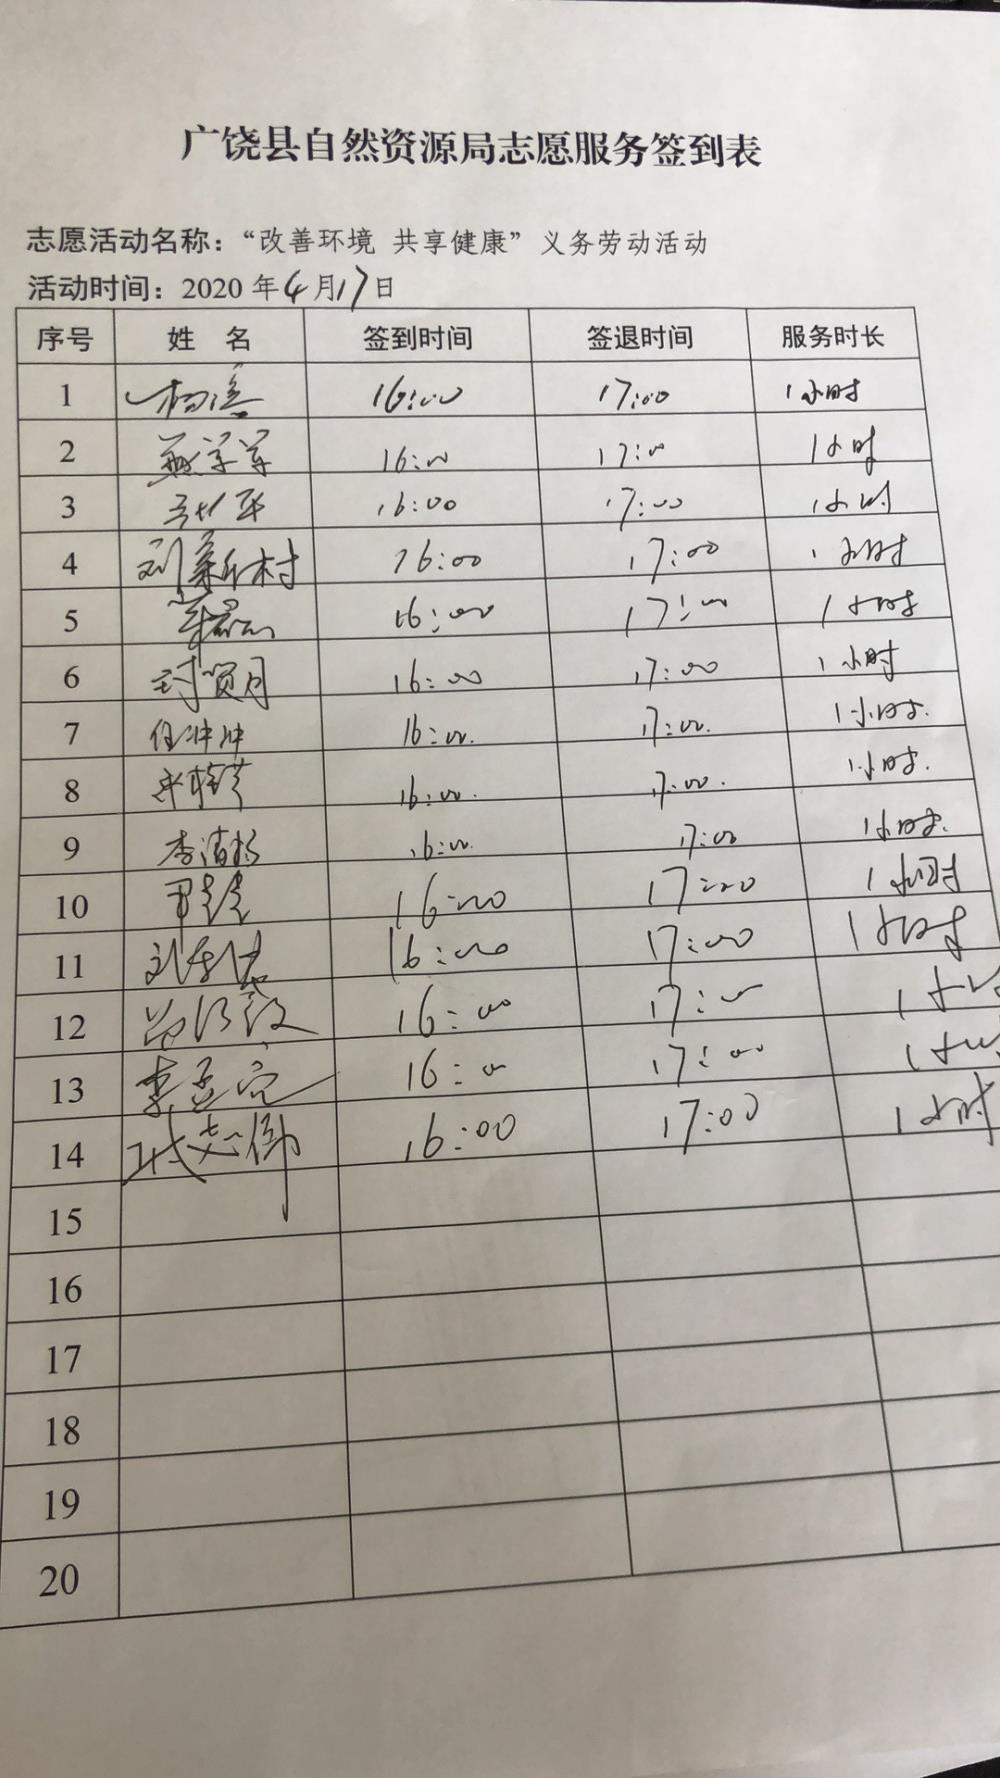 广饶县自然资源局志愿服务签到表
志愿活动名称：“改善环境 共享健康”义务劳动活动
活动时间：2020年4月17日
序号 姓 名 签到时间 签退时间 服务时长
1 16:00 17:00 1小时
2 16:00 17:00 1小时
3 16:00 17:00 1小时
4 刘新村 16:00 17:00 1小时
5 16:00 17:00 1小时
6 16:00 17:00 1小时
7 任冲冲 16:00 17:00 1小时.
8 16:00. 17:00. 1小时.
9 16:00. 17:00 1小时.
10 16:00 17:00 1小时
11 16:00 17:00 1小时
12 16:00 17:00 1小时
13 16:00 17:00 1小时
14 16:00 17:00 1小时
15
16
17
18
19
20